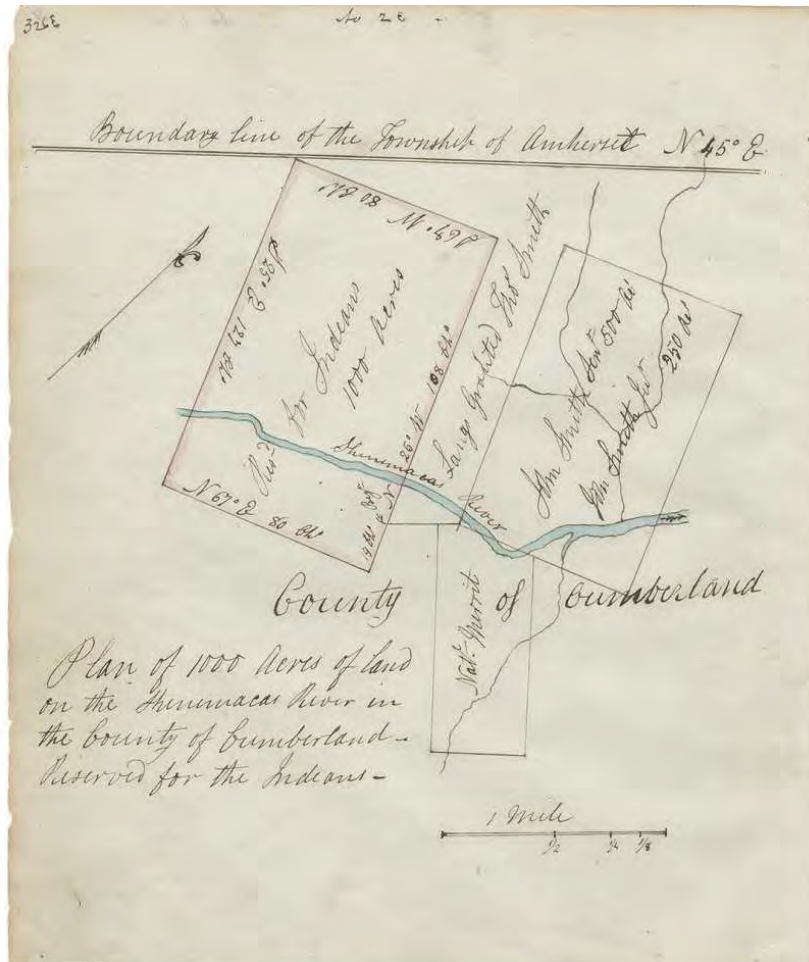 326E
No 2E
Boundary line of the Township of Amherst N 45° E
N 67° W 80 Ch.
S 25° E 127 Ch.
Resd for Indians
1000 Acres
N 67° E 80 Chs
N 26° W 108 Chs
Shenimacas River
Lands Granted Thos Smith
John Smith Senr 500 As
John Smith Junr 250 As
Natl Merrit
County of Cumberland
Plan of 1000 Acres of Land
on the Shenimacas River in
the County of Cumberland -
Reserved for the Indians -
1 Mile
1/2 1/4 1/8